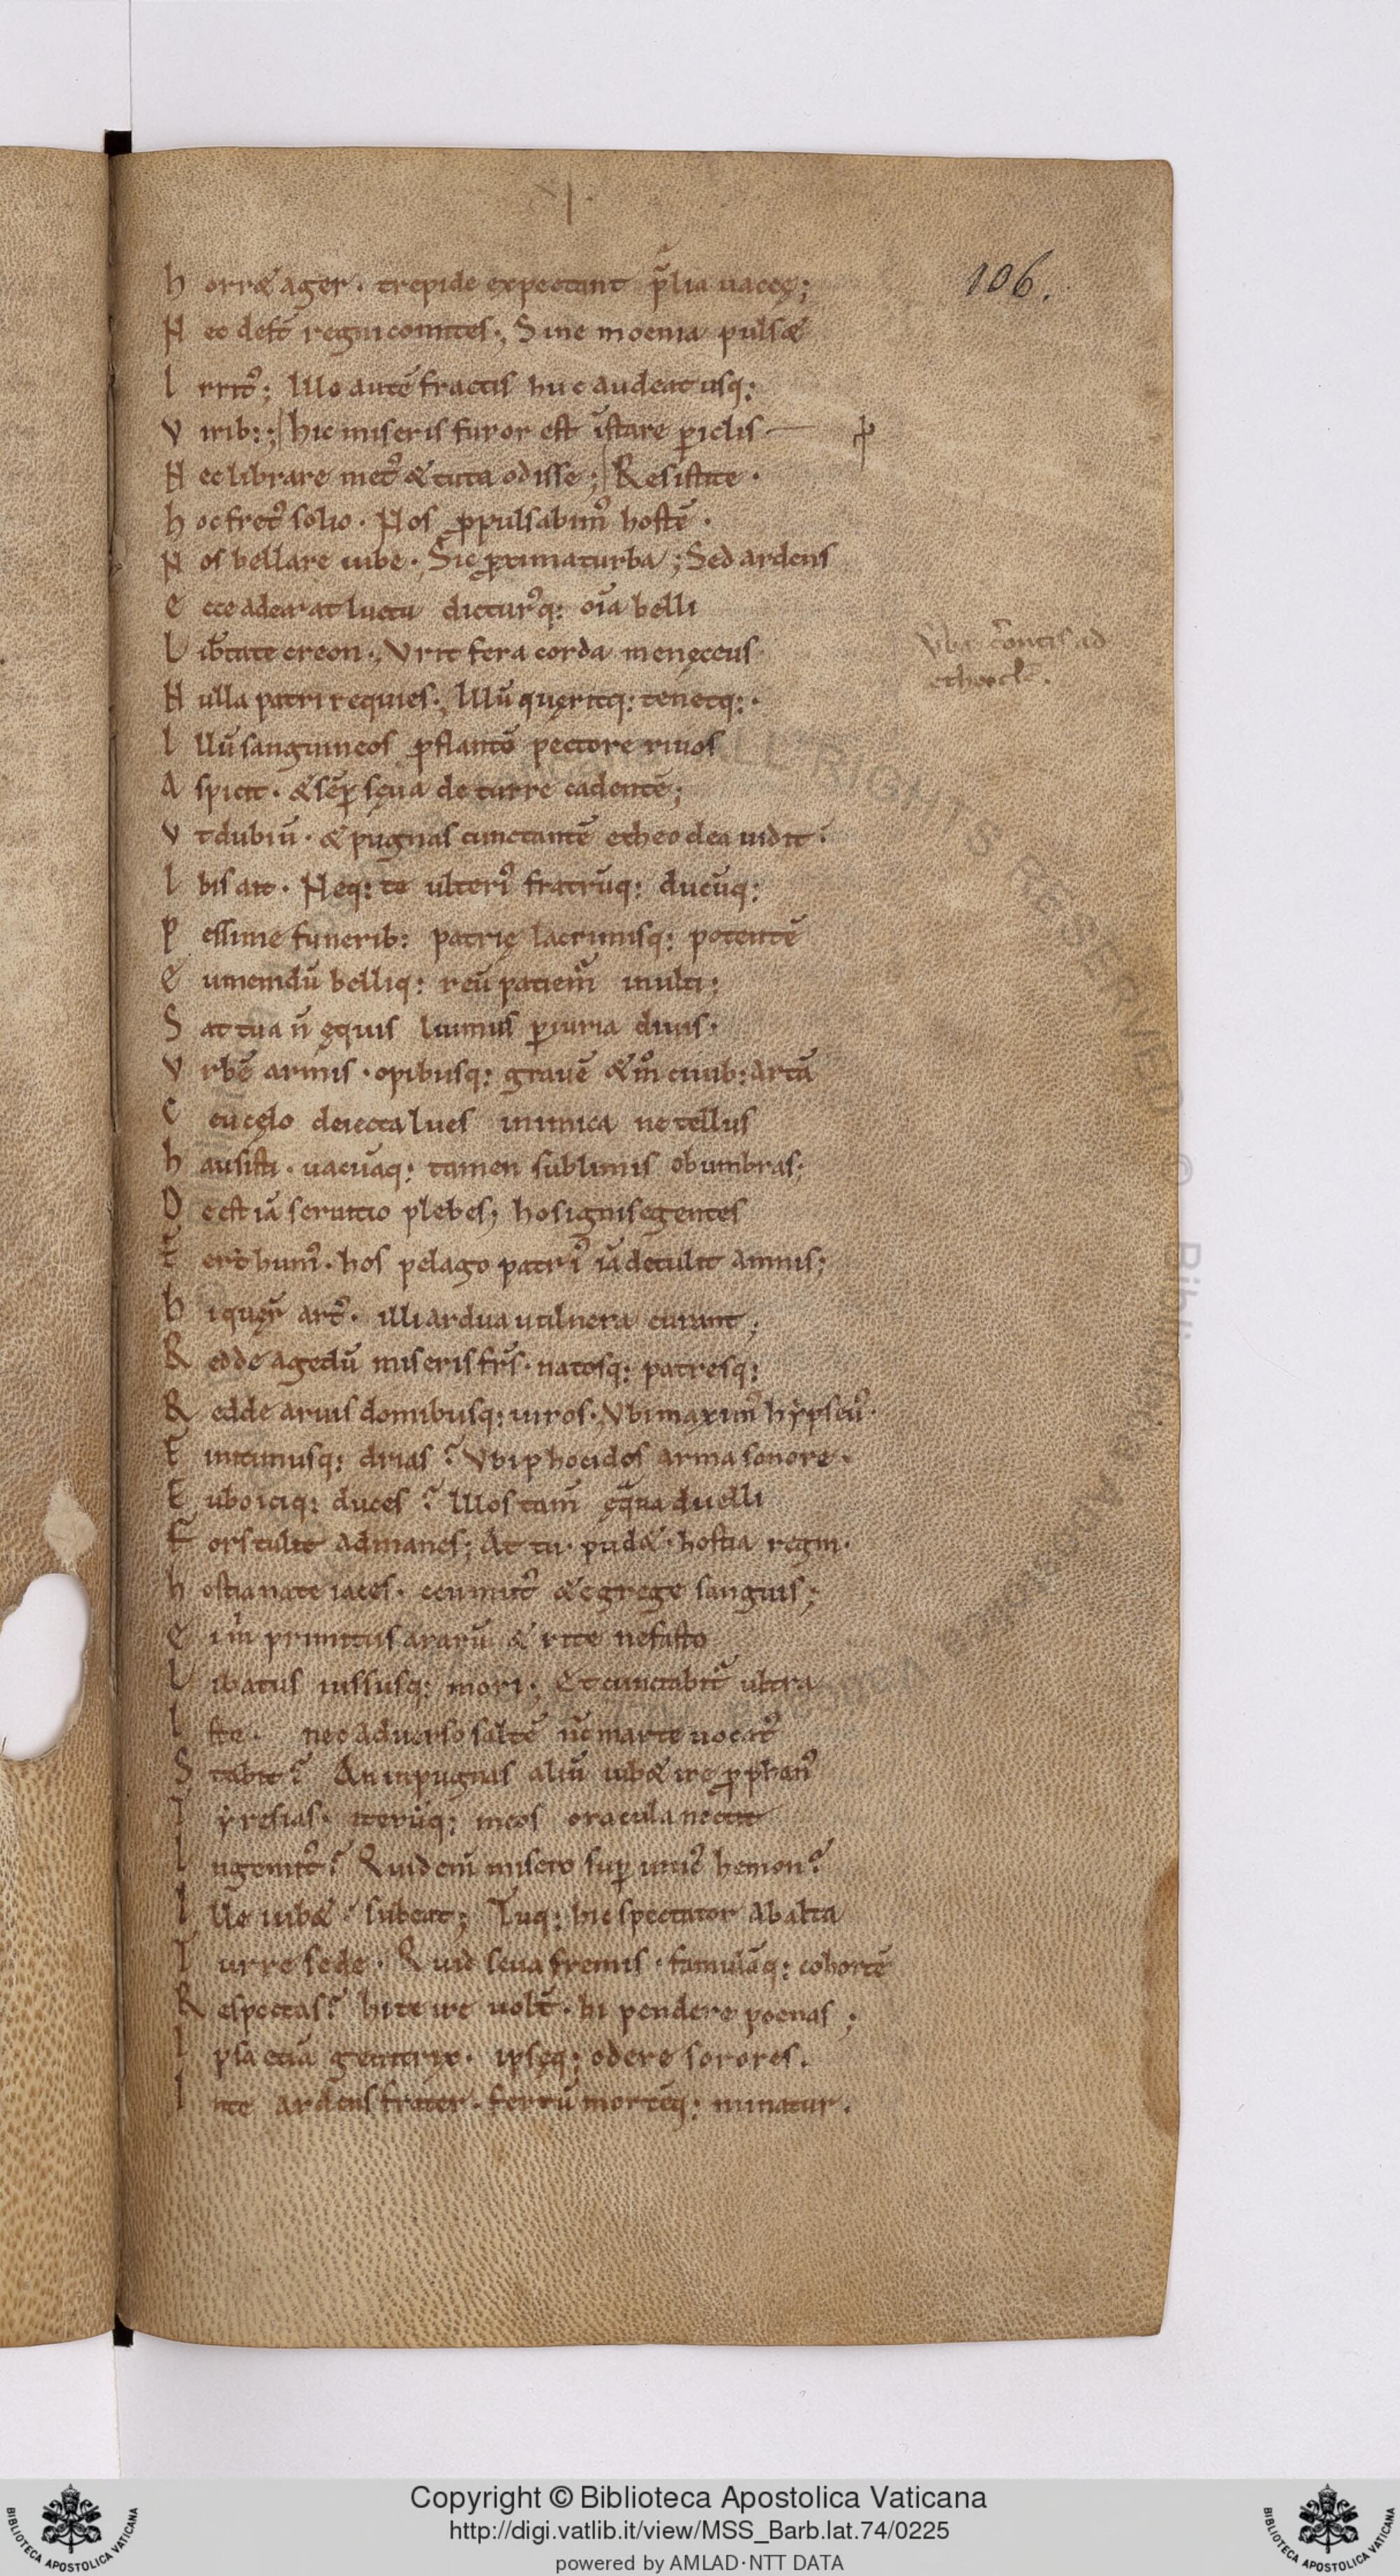 106.
H orr& ager · trepide expectant p̄lia uaccę;
N ec des̄t regni comites; Sine moenia pulsæ
I rrit᷒; Illo autē fractis huc audeat usq:
V irib:; hic miseris furor est īstare ꝑiclis
N ec librare met᷒ & tuta odisse; Resistite ·
H oc fret᷒ solio · Nos ꝓpulsabim᷒ hostē ·
N os bellare iube · Sic ꝓxima turba; Sed ardens
E cce aderat luctu dictur᷒q: oīa belli
L ib̄tate creon; Vrit fera corda menęceus
N ulla patri requies; Illū quęritq: tenetq: ·
Vbi c̄ontis ad
etheoclē.
I llū sanguineos ꝓflantē pectore riuos
A spicit · & sēꝑ sęua de turre cadentē;
V t dubiū · & pugnas cunctantē etheoclea uidit ·
I bis ait · Neq: te ulteri᷒ fratrūq: ducūq:
P essime funerib: patrię lacrimisq: potentē
E umenidū belliq: reū patiem᷒ inulti;
S at tua n̄ ęquis luimus ꝑiuria diuis·
V rbē armis · opibusq: grauē & m̊ ciuib: artā
C eu cęlo deiecta lues inimica ue tellus
H ausisti · uacuāq: tamen sublimis obumbras;
D eest iā seruitio plebes; hos ignis egentes
F ert humi · hos pelago patri᷒ iā detulit amnis;
H i quęr̄ art᷒ · illi ardua uulnera curant;
R edde agedū miseris fr̄s · natosq: patresq:
R edde aruis domibusq: uiros· Vbi maxim᷒ hẏpseu᷒·
F initimusq: drias? Vbi phocidos arma sonore ·
E uboiciq: duces? Illos tam̄ ęqua duelli
F ors tulit ad manes; At tu · pud& · hostia regni·
H ostia nate iaces · ceu mut᷒ & e grege sanguis;
E i m̊ primitiis ararū & rite nefasto
L ibatus iussusq: mori; Et cunctabit᷒ ultra
I ste · nec aduerso saltē nc̄ marte uocat᷒
S tabit? An in pugnas aliū iub& ire ꝓphan᷒
T ẏresias · iterūq: meos oracula nectit
I n gemit᷒? Quid em̄ misero suꝑ unic᷒ hemon?
I lle iub& · subeat; Tuq: hic spectator ab alta
T urre sede · Quid seua fremis · famulāq: cohortē
R espectas? hi te ire uolt̄ · hi pendere poenas;
I psa etiā genitrix · ipsęq: odere sorores.
I n te ardens frater · ferrū mortēq: minatur.
Copyright © Biblioteca Apostolica Vaticana
http://digi.vatlib.it/view/MSS_Barb.lat.74/0225
powered by AMLAD·NTT DATA